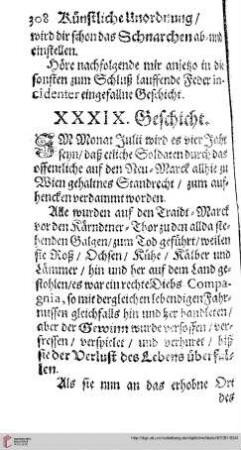 308 Künstliche Unordnung /
wird dir schon das Schnarchen ab- und
einstellen.
Höre nachfolgende mir anjetzo in die
sonsten zum Schluß lauffende Feder in-
cidenter eingefallne Geschicht.
XXXIX. Geschicht.
IM Monat Julii wird es vier Jahr
seyn / daß etliche Soldaten durch das
offentliche auf den Neu-Marck allhie zu
Wien gehaltnes Standrecht / zum auf-
hencken verdammt worden.
Alle wurden auf den Traidt-Marck
vor den Kärndtner-Thor zu den allda ste-
henden Galgen / zum Tod geführt / weilen
sie Roß / Ochsen / Kühe / Kälber und
Lämmer / hin und her auf dem Land ge-
stohlen / es war ein rechte Diebs Compa-
gnia, so mit dergleichen lebendigen Fahr-
nussen gleichfalls hin und her handleten /
aber der Gewinn wurde versoffen / ver-
fressen / verspielet / und verhuret / biß
sie der Verlust des Lebens überfal-
len.
Als sie nun an das erhobne Ort
des